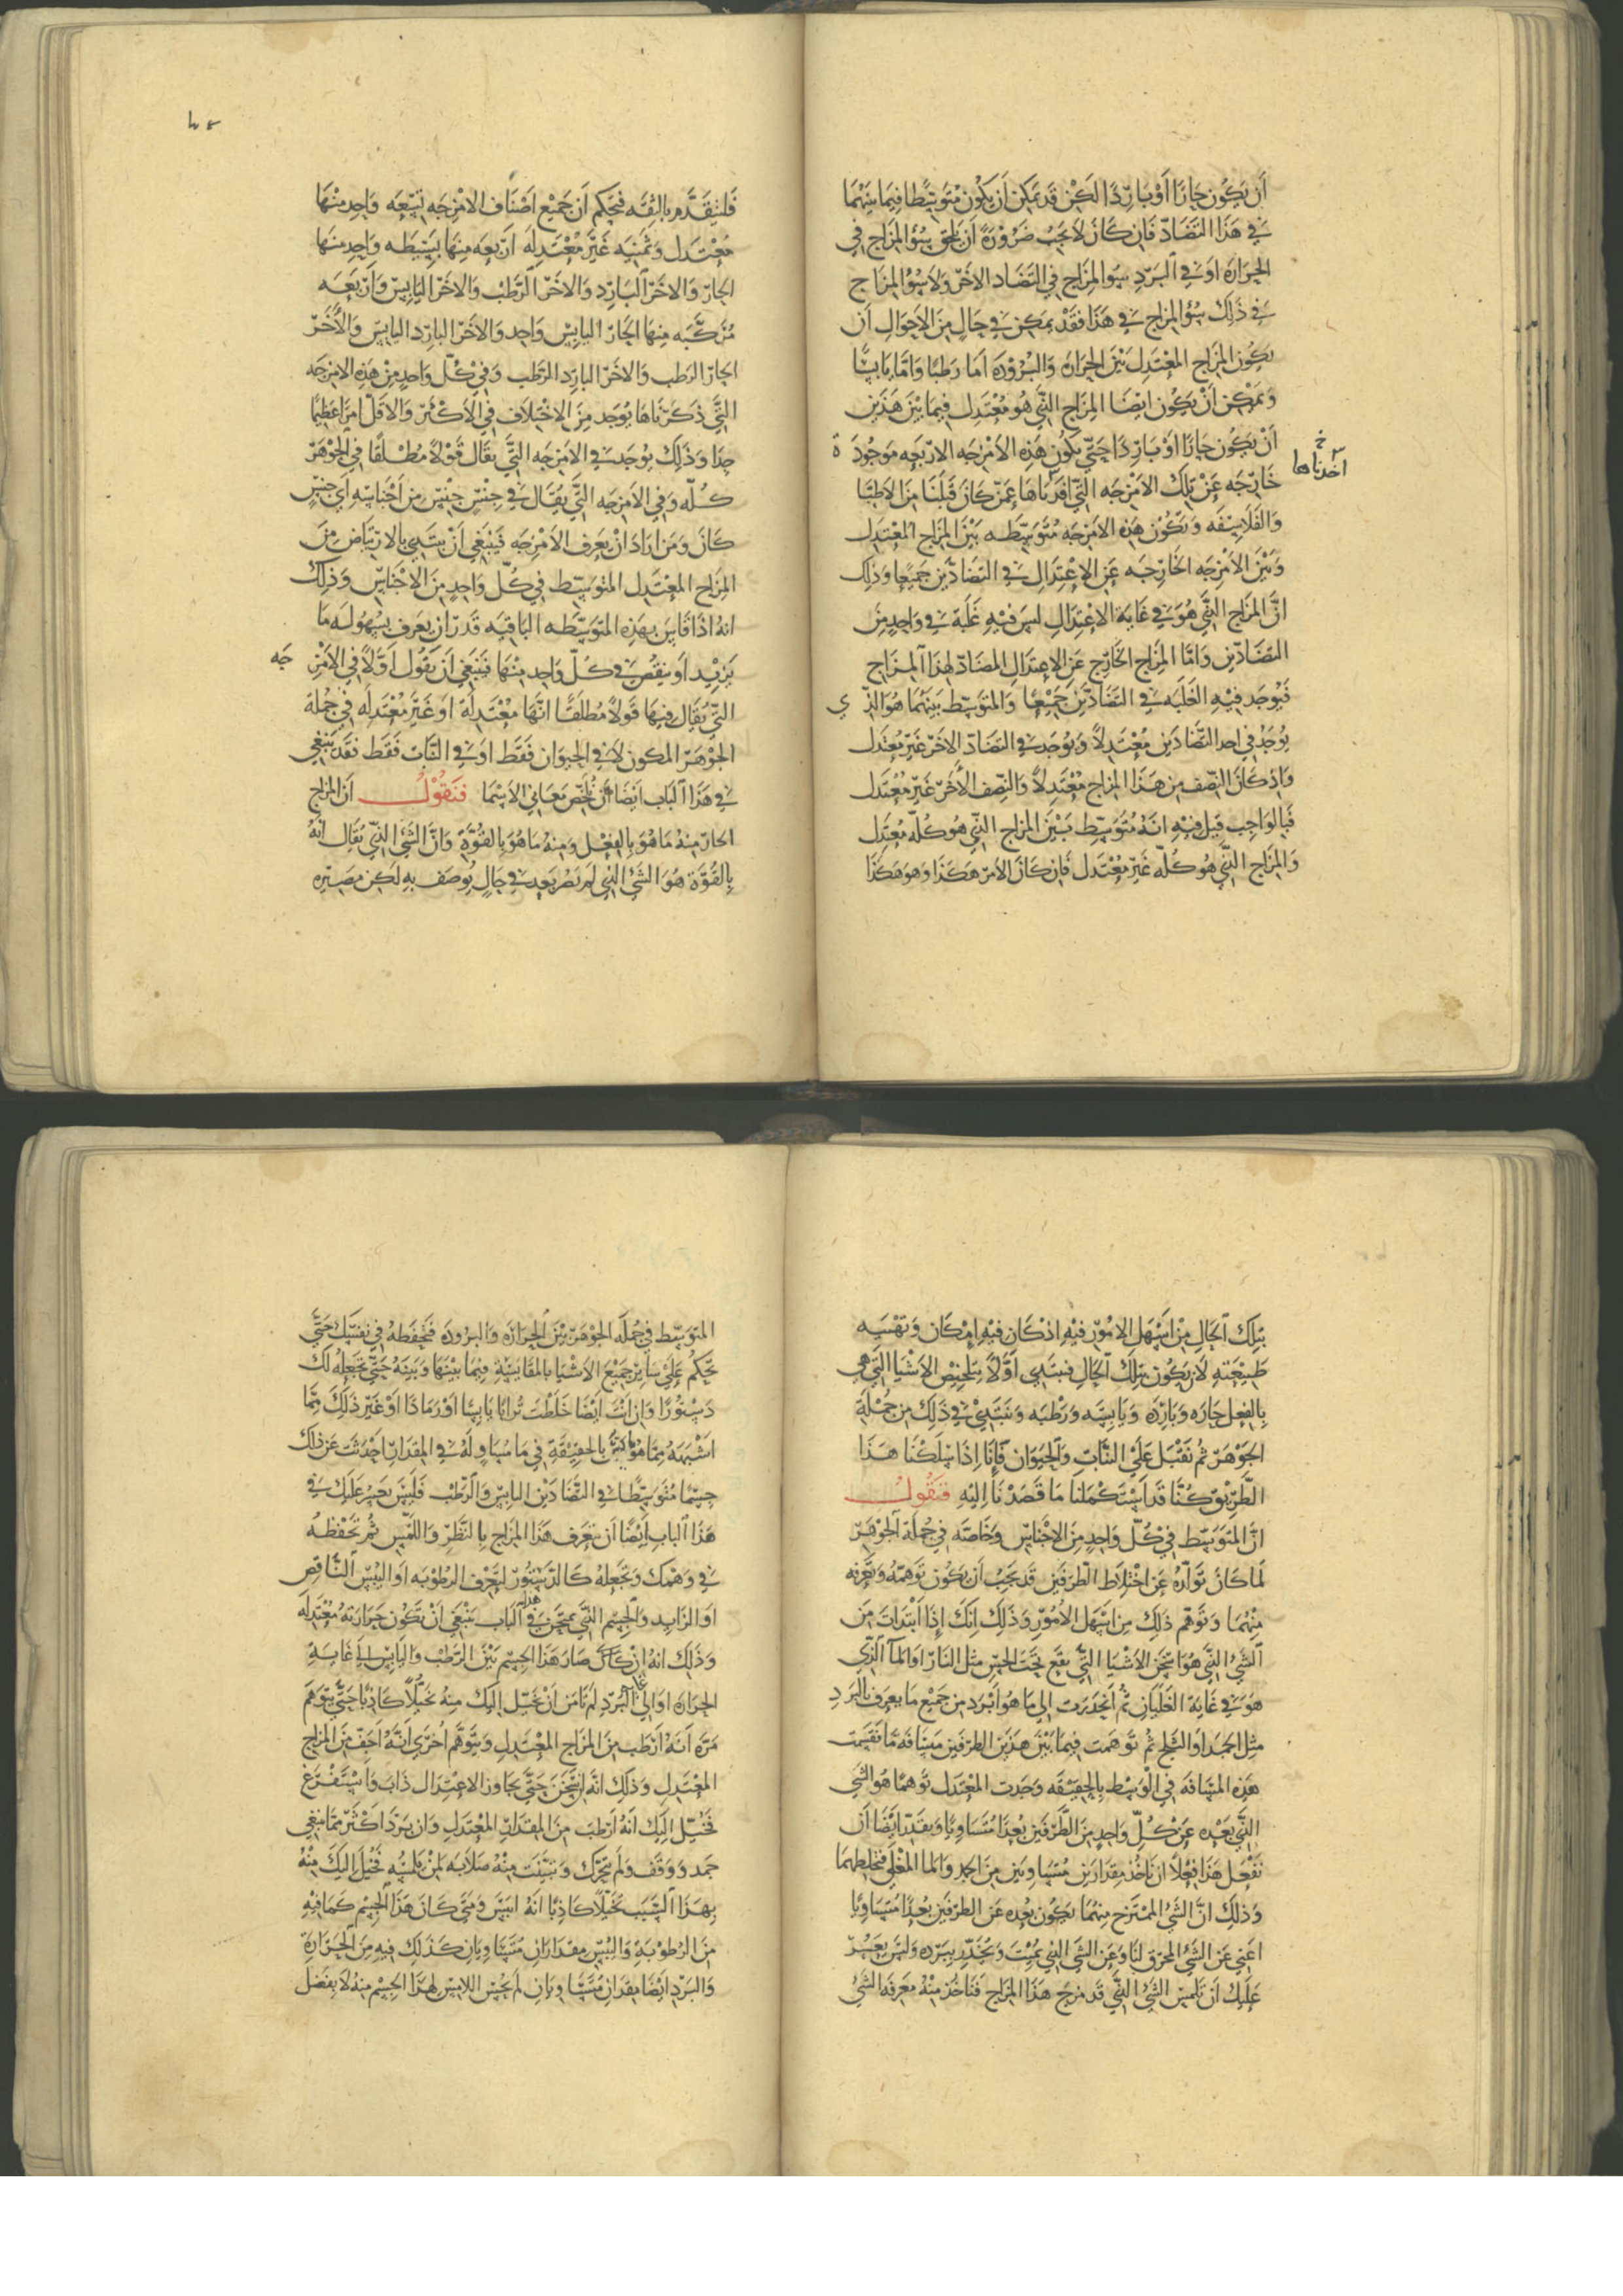 أن يكون حارا أو باردا لكن قد يمكن أن يكون متوسطا فيما بينهما
في هذا التضاد فان كان لا يجب ضرورة أن يلحق سوء المزاج في
الحرارة او في البرد سوء المزاج في التضاد الاخر ولا سوء المزاج
في ذلك سوء المزاج في هذا فقد يمكن في حال من الاحوال أن
يكون المزاج المعتدل بين الحرارة والبرودة اما رطبا واما يابسا
ويمكن أن يكون ايضا المزاج الذي هو معتدل فيما بين هذين
أن يكون حارا أو باردا حتى يكون هذه الامزجه الاربعه موجودة
خ
اخذناها
خارجه عن تلك الامزجه التي افدناها عمن كان قبلنا من الاطبا
والفلاسفه وتكون هذه الامزجه متوسطه بين المزاج المعتدل
وبين الامزجه الخارجه عن الاعتدال في التضادين جميعا وذلك
ان المزاج الذي هو في غاية الاعتدال ليس فيه غلبة في واحد من
التضادين واما المزاج الخارج عن الاعتدال المضاد لهذا المزاج
فيوجد فيه الغلبه في التضادين جميعا والمتوسط بينهما هو الذي
يوجد في احد التضادين معتدلا ويوجد في التضاد الاخر غير معتدل
واذ كان النصف من هذا المزاج معتدلا والنصف الأخر غير معتدل
فبالواجب قيل فيه انه متوسط بين المزاج الذي هو كله معتدل
والمزاج الذي هو كله غير معتدل فإن كان الامر هكذا وهو هكذا
فلنتقدم بالثقه فنحكم أن جميع اصناف الامزجه تسعه واحد منها
معتدل وثمنيه غير معتدله أربعه منها بسيطه واحد منها
الحار والاخر البارد والاخر الرطب والاخر اليابس وأربعه
مركبه منها الحار اليابس واحد والاخر البارد اليابس والأخر
الحار الرطب والاخر البارد الرطب وفي كل واحد من هذه الامزجه
التي ذكرناها يوجد من الاختلاف في الأكثر والاقل امرا عظيما
جدا وذلك يوجد في الامزجه التي يقال قولا مطلقا في الجوهر
كله وفي الامزجه التي يقال في جنس جنس من أجناسه اي جنس
كان ومن اراد أن يعرف الأمزجه فينبغي أن يبتدي بالارتياض من
المزاج المعتدل المتوسط في كل واحد من الاجناس وذلك
انه اذا قاس بهذه المتوسطه الباقيه قدر أن يعرف بسهوله ما
يزيد أو ينقص في كل واحد منها فينبغي أن نقول أولا في الأمزجه
التي يقال فيها قولا مطلقا انها معتدلة او غير معتدله في جملة
الجوهر المكون لا في الحيوان فقط او في النبات فقط فقد ينبغي
في هذا الباب ايضا أن نلخص معاني الاسما فنقول أن المزاج
الحار منه ما هو بالفعل ومنه ما هو بالقوة وان الشي الذي يقال انه
بالقوة هو الشي الذي لم يصر بعد في حال يوصف به لكن مصيره
بتلك الحال من اسهل الامور فيه اذ كان فيه إمكان وتهييه
طبيعته لان يكون بتلك الحال فنبتدي أولا بتلخيص الاشيا التي هي
بالفعل حاره وبارده ويابسه ورطبه ونبتدي في ذلك من جملة
الجوهر ثم نقبل علي النبات والحيوان فإنا اذا سلكنا هذا
الطريق كنا قد استكملنا ما قصدنا اليه فنقول
ان المتوسط في كل واحد من الاجناس وخاصة في جملة الجوهر
لما كان تولده عن اختلاط الطرفين قد يجب أن يكون توهمه وتعرفه
منهما وتوهم ذلك من اسهل الأمور وذلك انك إذا ابتدات من
الشي الذي هو اسخن الاشيا التي يقع تحت الحس مثل النار او الما الذي
هو في غاية الغليان ثم انحدرت الي ما هو ابرد من جميع ما يعرف بالبرد
مثل الجمد او الثلج ثم توهمت فيما بين هذين الطرفين مسافة ما نقسمت
هذه المسافه في الوسط بالحقيقه وجدت المعتدل توهما هو الشي
الذي بعده عن كل واحد من الطرفين بعدا متساويا ويقدر ايضا أن
نفعل هذا فعلا ان ناخذ مقدارين متساويين من الجمد والما المغلي فنخلطهما
وذلك ان الشي الممتزج منهما يكون بعده عن الطرفين بعدا متساويا
اعني عن الشي المحرق لنا وعن الشي الذي يميت ويخدر ببرده وليس يعسر
عليك أن تلمس الشي الذي قد مزج هذا المزاج فتاخذ منه معرفه الشي
المتوسط في جمله الجوهر بين الحرارة والبرودة فتحفظه في نفسك حتى
تحكم علي ساير جميع الاشيا بالمقايسة فيما بينها وبينه حتى تجعله لك
دستورا وان انت ايضا خلطت ترابا يابسا أو رمادا أو غير ذلك مما
اشبهه مما هو يابس بالحقيقة في ما مساو له في المقدار احدثت عن ذلك
جسما متوسطا في التضادين اليابس والرطب فليس يعسر عليك في
هذا الباب ايضا أن تعرف هذا المزاج بالنظر واللمس ثم تحفظه
في وهمك وتجعله كالدستور لتعرف الرطوبه او اليبس الناقص
او الزايد والجسم الذي يمتحن في هذا الباب ينبغي أن تكون حرارته معتدله
وذلك انه ان كان صار هذا الجسم بين الرطب واليابس الي غاية
الحراره او الي غاية البرد لم نامن أن تخيل اليك منه تخيلا كاذبا حتى يتوهم
مرة أنه ارطب من المزاج المعتدل ويتوهم أخرى انه أجف من المزاج
المعتدل وذلك انه ان سخن حتى يجاوز الاعتدال ذاب واستفرغ
فخيل اليك أنه ارطب من المقدار المعتدل وان برد اكثر مما ينبغي
جمد ووقف ولم يتحرك وتبينت منه صلابه لمن يلمسه فخيل إليك منه
بهذا السبب تخيلا كاذبا انه ايبس ومتي كان هذا الجسم كما فيه
من الرطوبة واليبس مقداران متساويان كذلك فيه من الحرارة
والبرد ايضا مقداران متساويان لم يحس اللامس لهذا الجسم منه لا بفضل